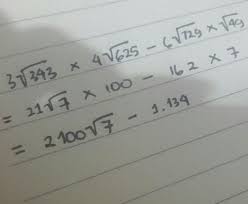 3√343 × 4√625 − 6√729 × √49
= 21√7 × 100 − 162 × 7
= 2100√7 − 1.134